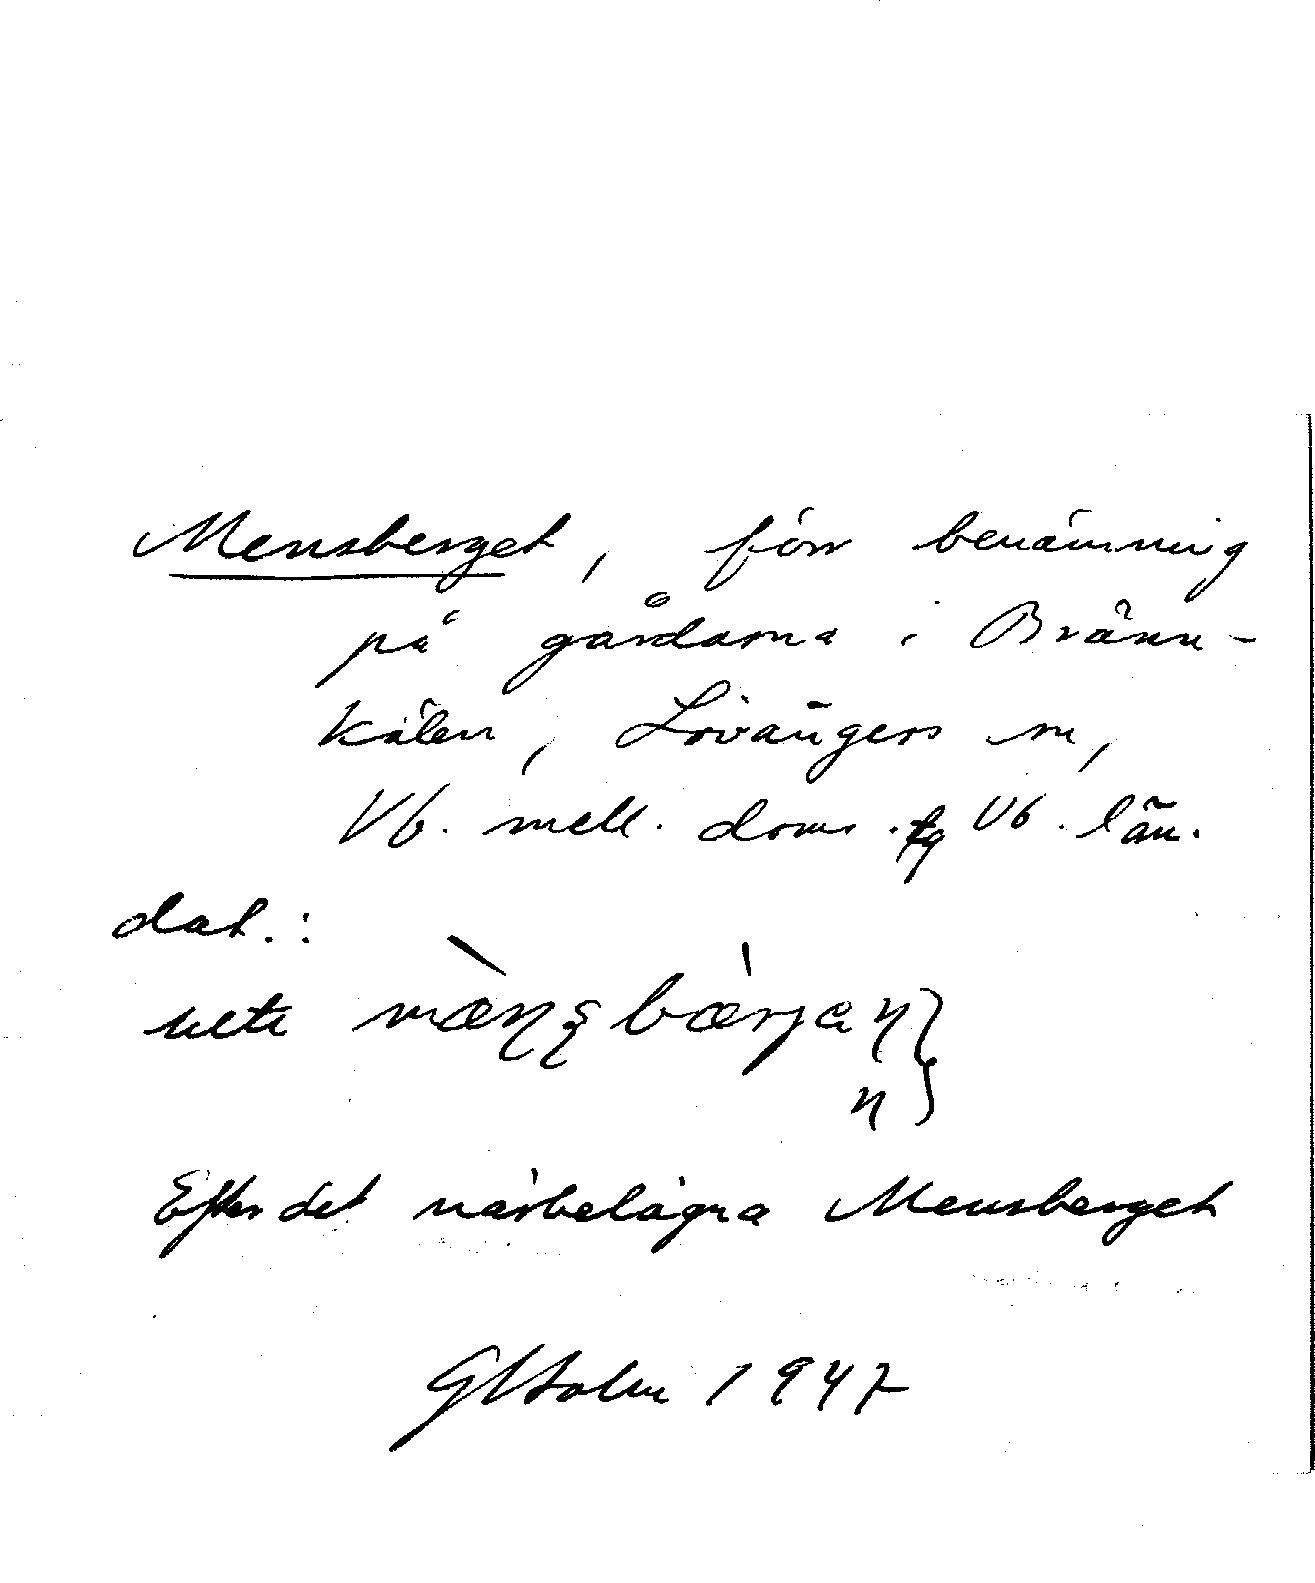 Mensberget, förr benämning
på gårdarna i Bränn-
kälen, Lövångers sn,
Vb. mell. doms. tg Vb. län.
dat.:
uete mæŋsbærjaŋ}
n}
Efter det närbelägna Mensberget
G Holm 1947